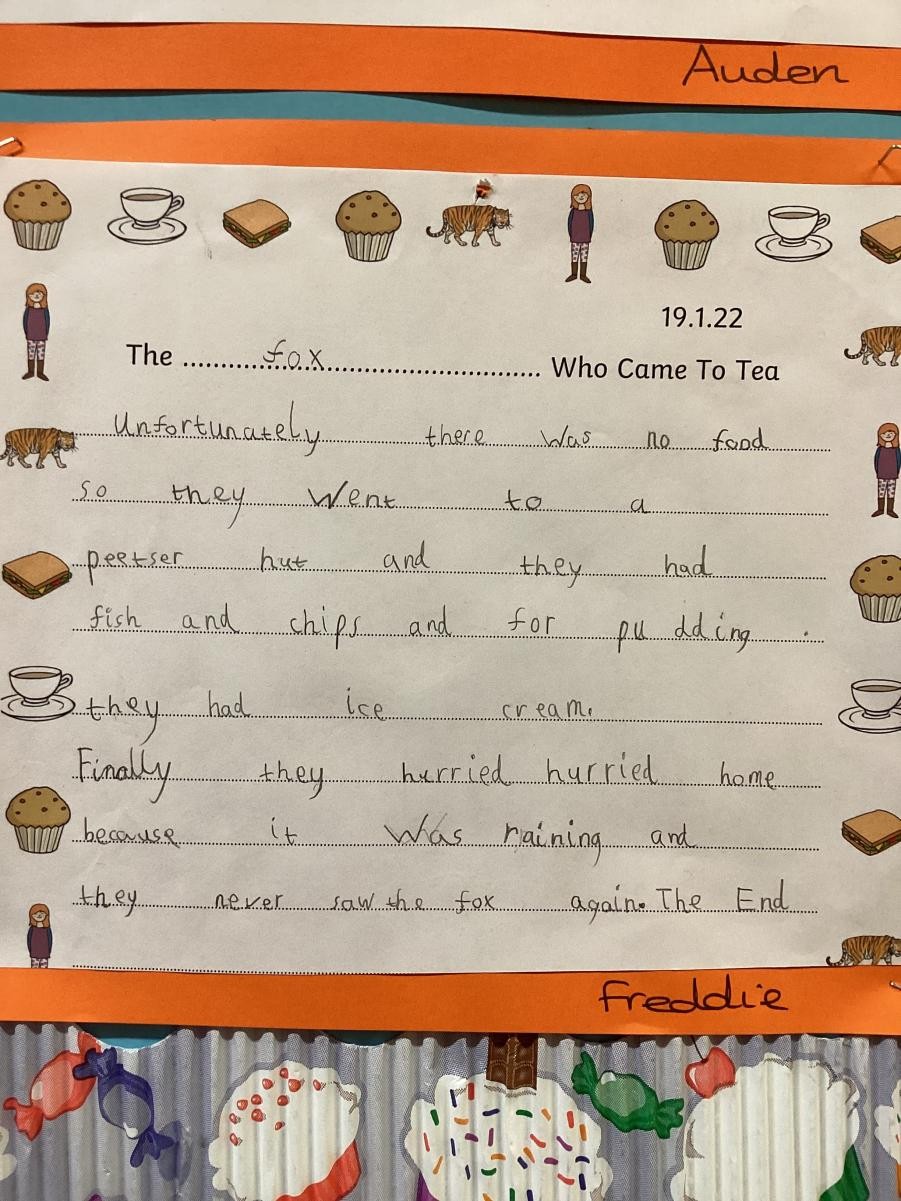 Auden
19.1.22
The ..........fox................................ Who Came To Tea
Unfortunately there was no food
so they went to a
peetser hut and they had
fish and chips and for pu dding .
they had ice cream.
Finally they hurried hurried home
because it was raining and
they never saw the fox again. The End
Freddie